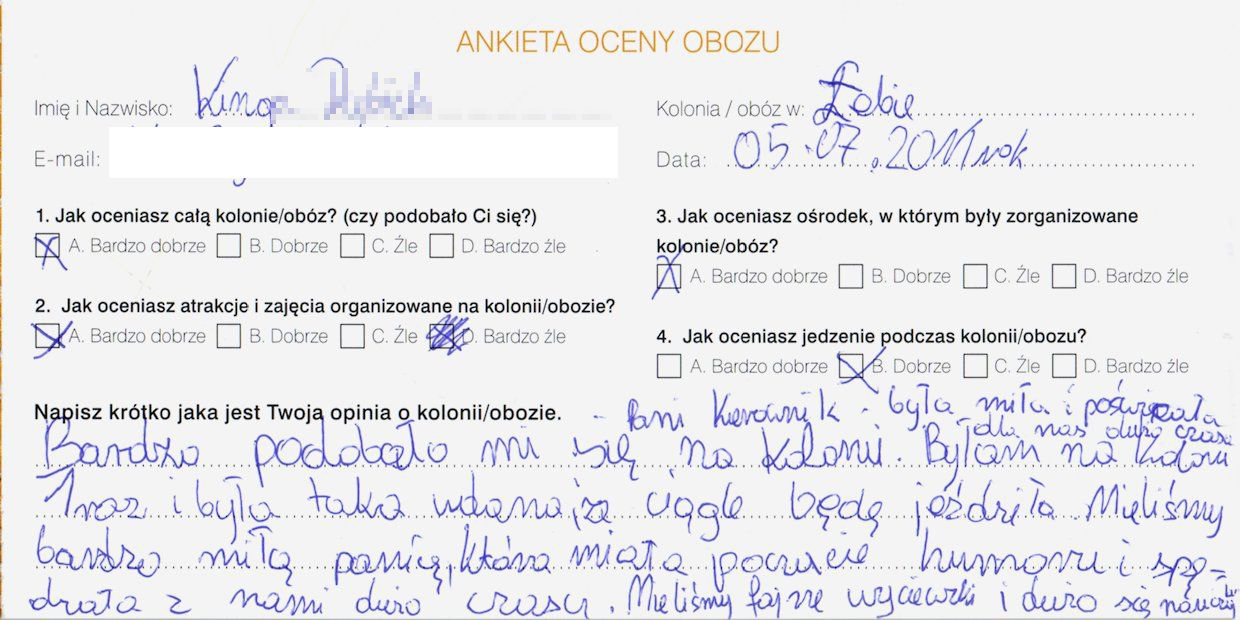 ANKIETA OCENY OBOZU
Imię i Nazwisko: Kinga
Kolonia / obóz w: Łebie
E-mail:
Data: 05.07.2011 rok
1. Jak oceniasz całą kolonie/obóz? (czy podobało Ci się?)
A. Bardzo dobrze B. Dobrze C. Źle D. Bardzo źle
2. Jak oceniasz atrakcje i zajęcia organizowane na kolonii/obozie?
A. Bardzo dobrze B. Dobrze C. Źle D. Bardzo źle
3. Jak oceniasz ośrodek, w którym były zorganizowane
kolonie/obóz?
A. Bardzo dobrze B. Dobrze C. Źle D. Bardzo źle
4. Jak oceniasz jedzenie podczas kolonii/obozu?
A. Bardzo dobrze B. Dobrze C. Źle D. Bardzo źle
Napisz krótko jaka jest Twoja opinia o kolonii/obozie.
- Pani Kierownik - była miła i poświęcała
dla nas dużo czasu
Bardzo podobało mi się na kolonii. Byłam na kolonii
1 raz i była taka udana, że ciągle będę jeździła. Mieliśmy
bardzo miłą panią, która miała poczucie humoru i spę-
dzała z nami dużo czasu. Mieliśmy fajne wycieczki i dużo się